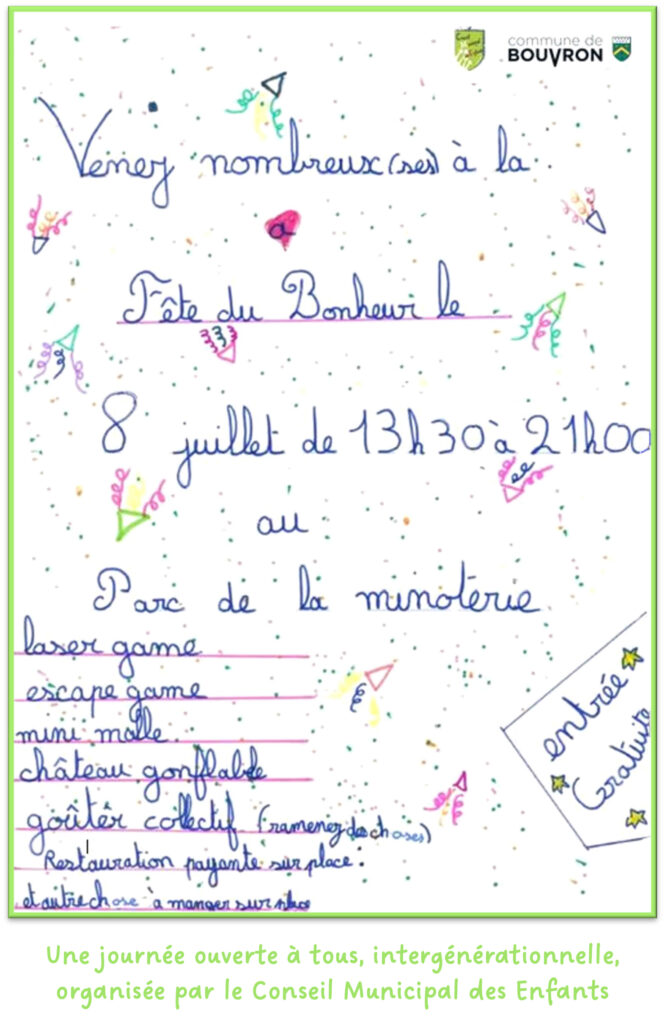 commune de
BOUVRON
Venez nombreux(ses) à la
Fête du Bonheur le
8 juillet de 13h30 à 21h00
au
Parc de la minoterie
laser game
escape game
mini molle
château gonflable
goûter collectif (ramenez des choses)
Restauration payante sur place.
et autre chose à manger sur place
entrée
Gratuite
Une journée ouverte à tous, intergénérationnelle,
organisée par le Conseil Municipal des Enfants